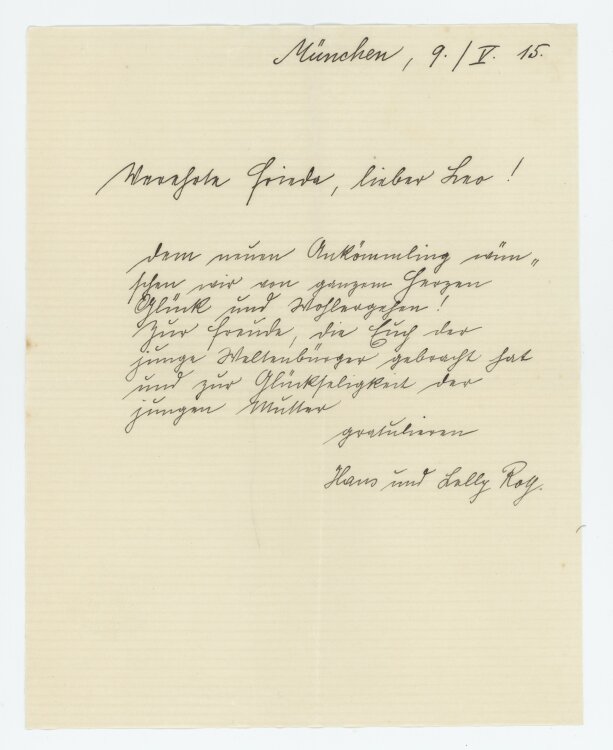 München, 9./V. 15.
Verehrte Frieda, lieber Leo!
Dem neuen Ankömmling wün„
schen wir von ganzem Herzen
Glück und Wohlergehen!
Zur Freude, die Euch der
junge Weltenbürger gebracht hat
und zur Glückseligkeit der
jungen Mutter
gratulieren
Hans und Lelly